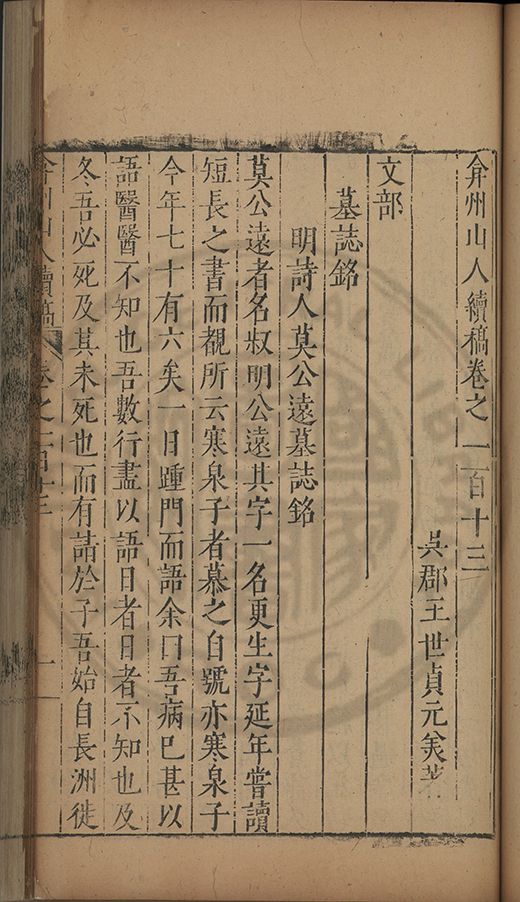 弇州山人續稿卷之一百十三
吳郡王世貞元美著
文部
墓誌銘
明詩人莫公遠墓誌銘
莫公遠者名叔明公遠其字一名更生字延年嘗讀
短長之書而覩所云寒泉子者慕之自號亦寒泉子
今年七十有六矣一日踵門而語余曰吾病已甚以
語醫醫不知也吾數行盡以語日者日者不知也及
冬吾必死及其未死也而有請於子吾始自長洲徙
弇州山人續稿 卷之一百十三 一